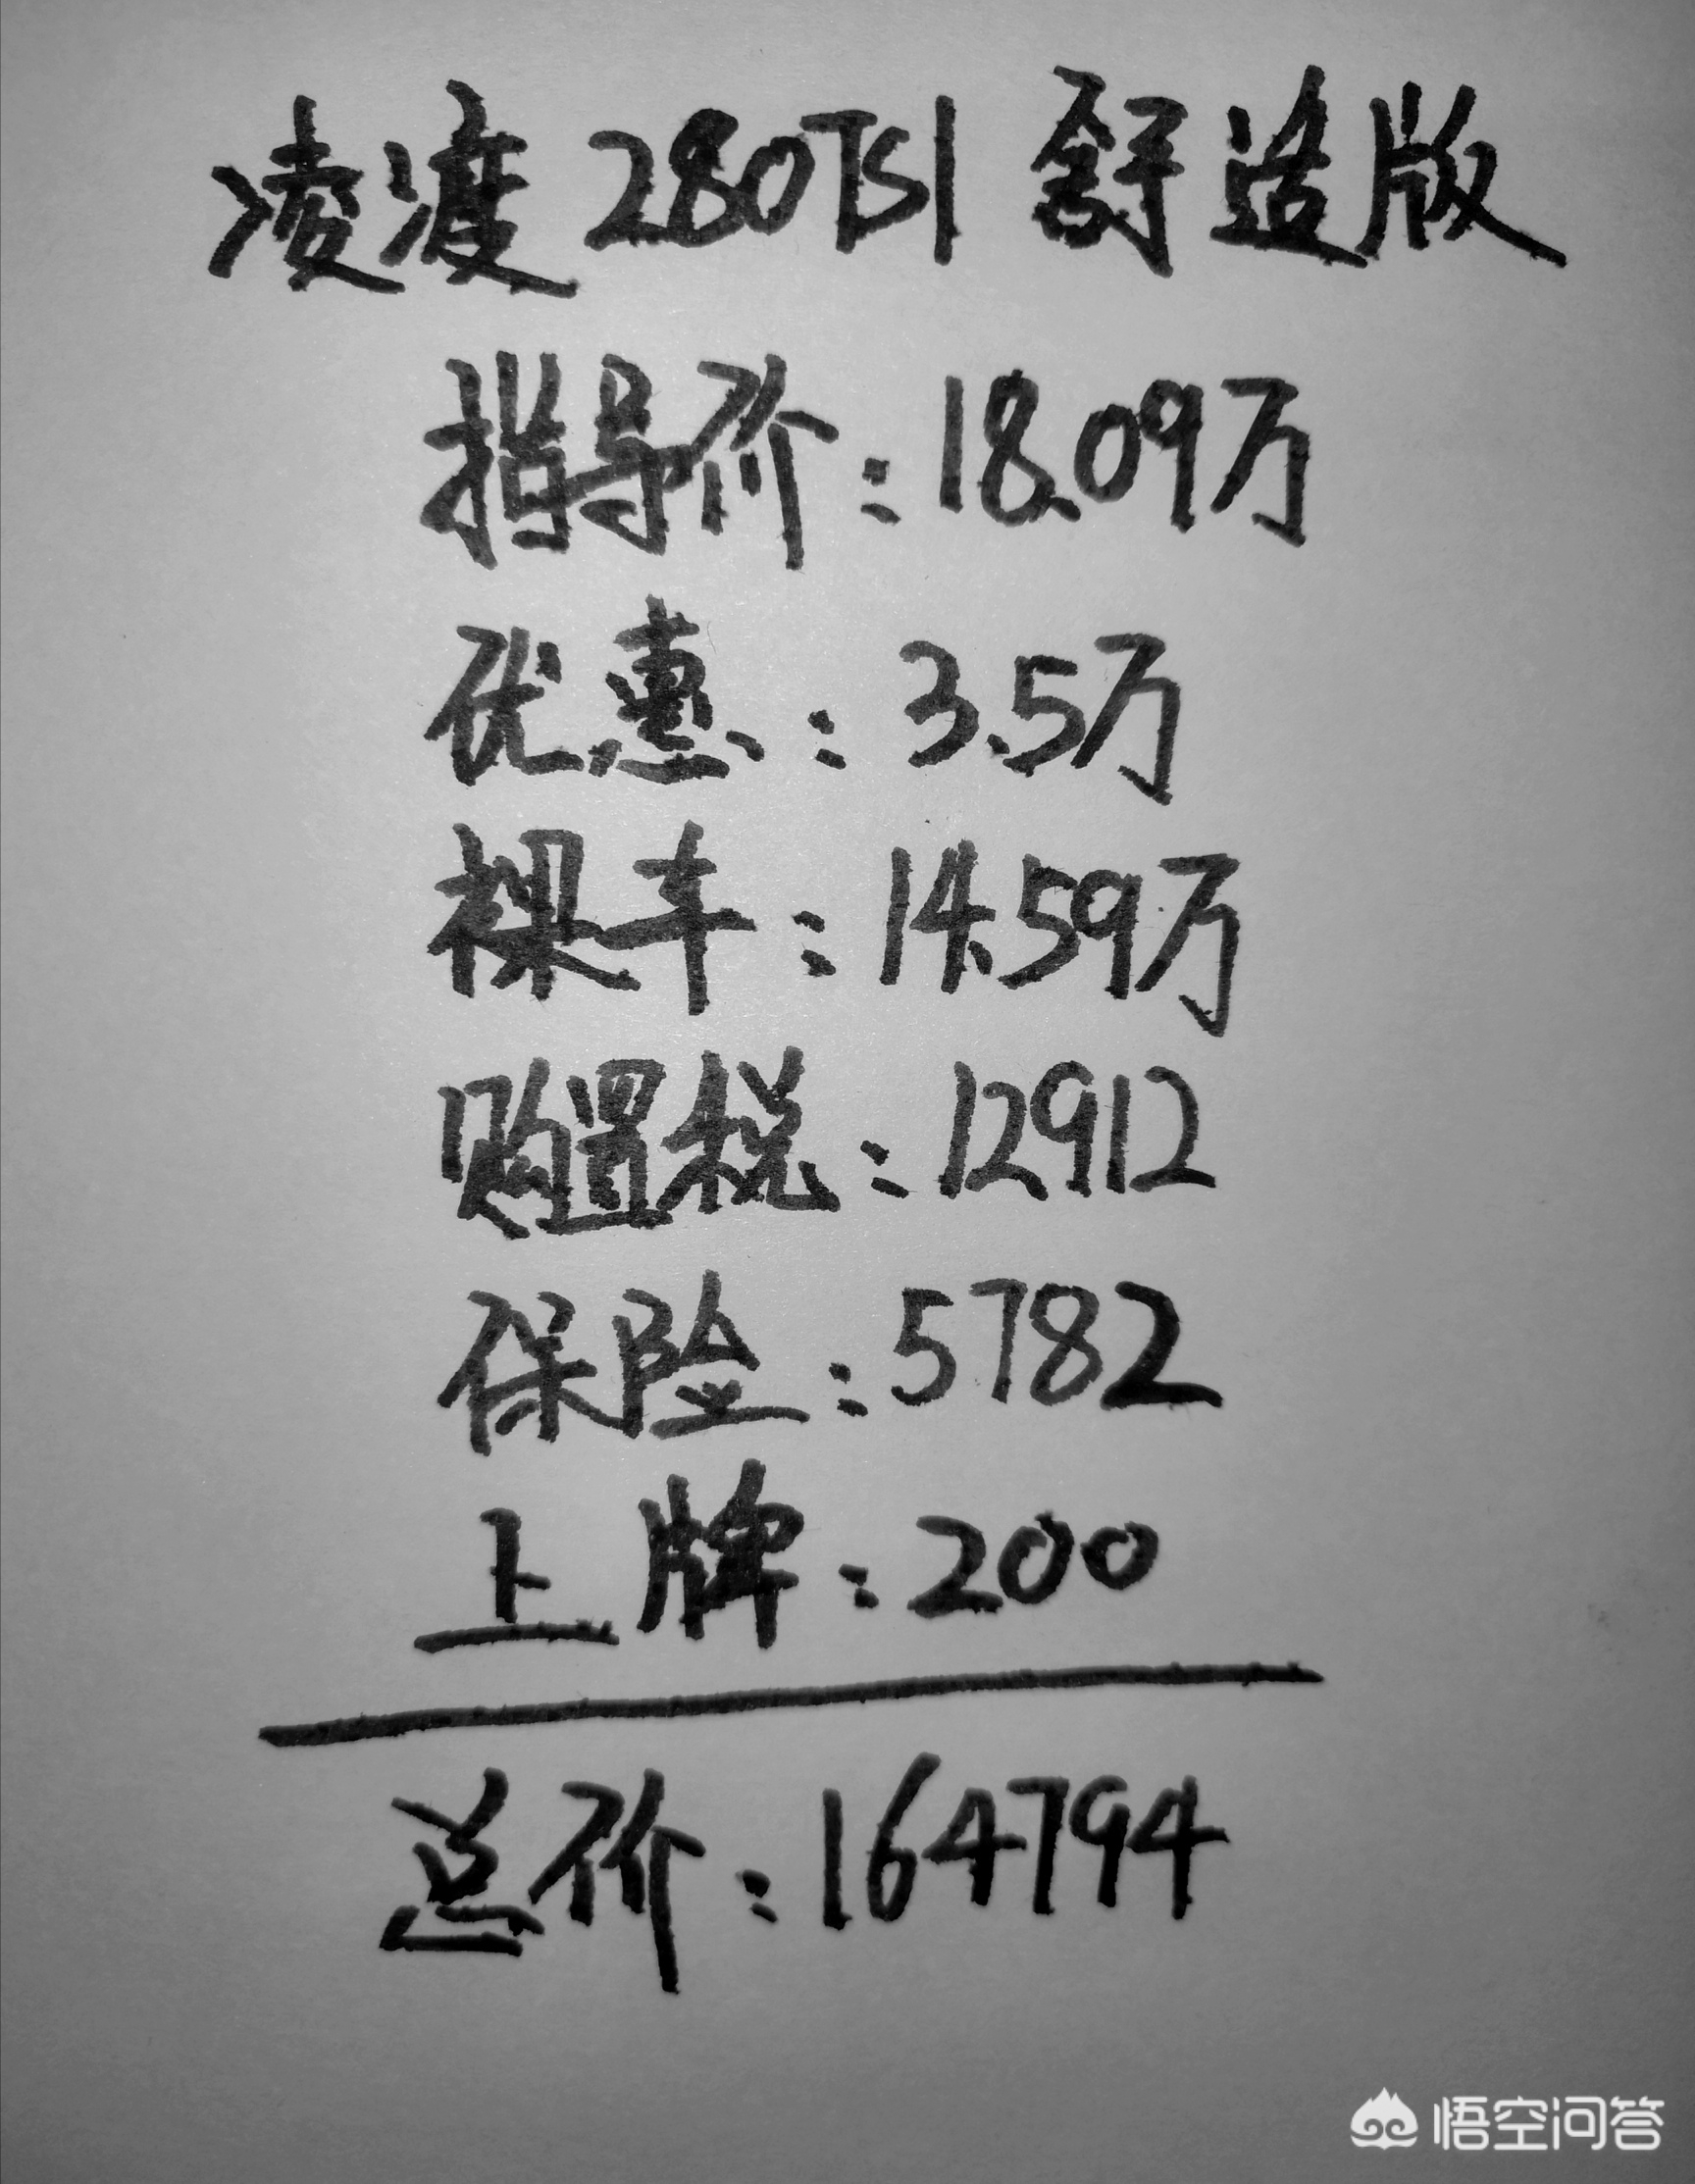 凌渡 280TSI 舒适版
指导价：18.09万
优惠：3.5万
裸车：14.59万
购置税：12912
保险：5782
上牌：200
总价：164794
悟空问答